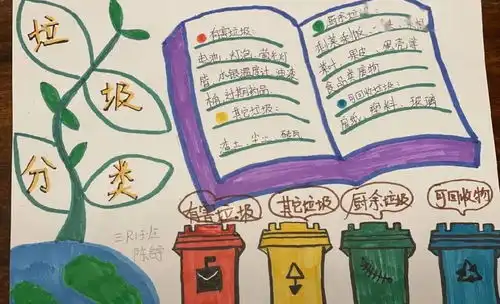 垃
圾
分
类
有害垃圾：
电池、灯泡、荧光灯
管、水银温度计、电液
桶、过期药品
其它垃圾：
渣土、尘土、砖瓦
厨余垃圾：
剩菜剩饭、
菜叶、果皮、蛋壳、
食品类废物
可回收垃圾：
废纸、塑料、玻璃
有害垃圾
其它垃圾
厨余垃圾
可回收物